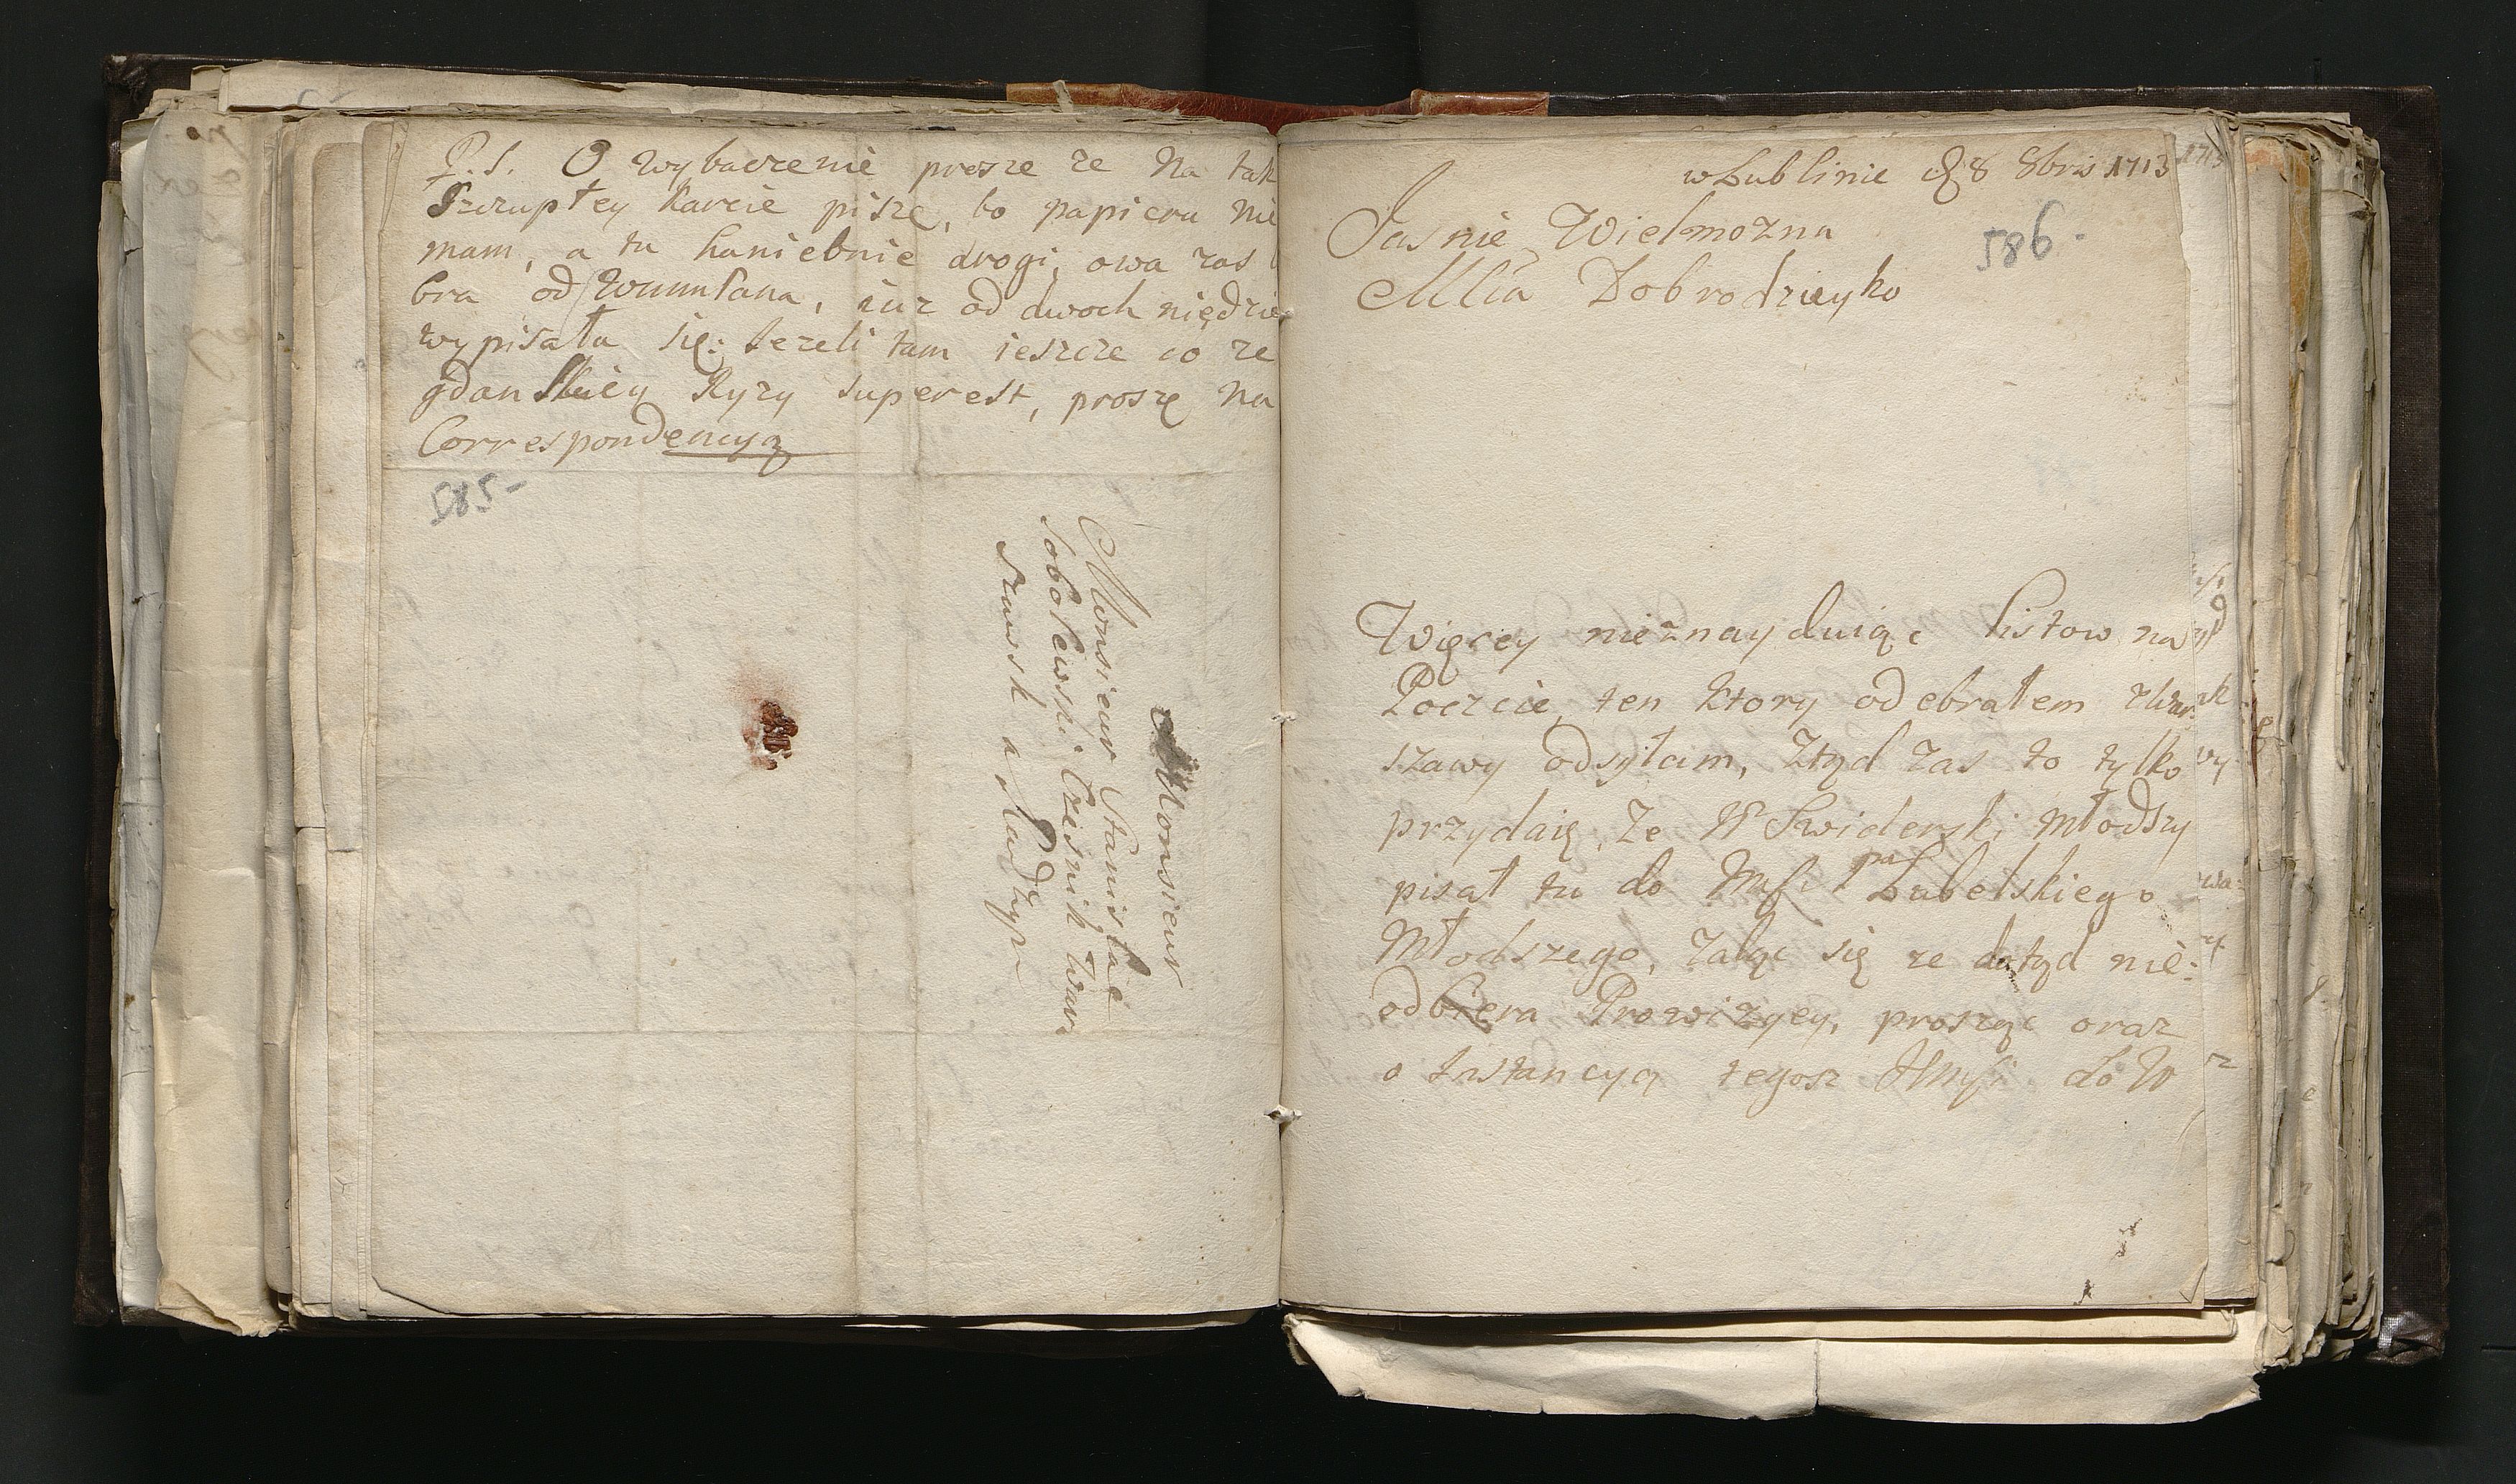 P.S. O wybaczenie prosze ze na tak
Szczupłey karcie piszę, bo papieru nie
mam, a tu haniebnie drogi, owa zas
bra od Wmm Pana, iuz od dwoch niedzie
wypisała się: Jezeli tam ieszcze co ze
gdanskiey Ryzy superest, proszę na
Correspondencyą
585-
A Monsieur
Monsieur Stanisłae
Sobolewski Czesnik War
szawsk a
w Lublinie d 8 8bris 1713
1713
586-
Jasnie Wielmozna
Mścia Dobrodzieyko
Więcey nieznayduiąc listow na
Poczcie, ten ktory odebrałem zWar
szawy odsyłam, ztąd zas to tylko
przydaię, ze JP Swiderski Młodszy
pisał tu do Jmsci pa Lubelskiego
Młodszego, zaląc się ze dotąd nie:
odbiera Prowizyey, prosząc oraz
o Instancyą tegosz Jmsci do W